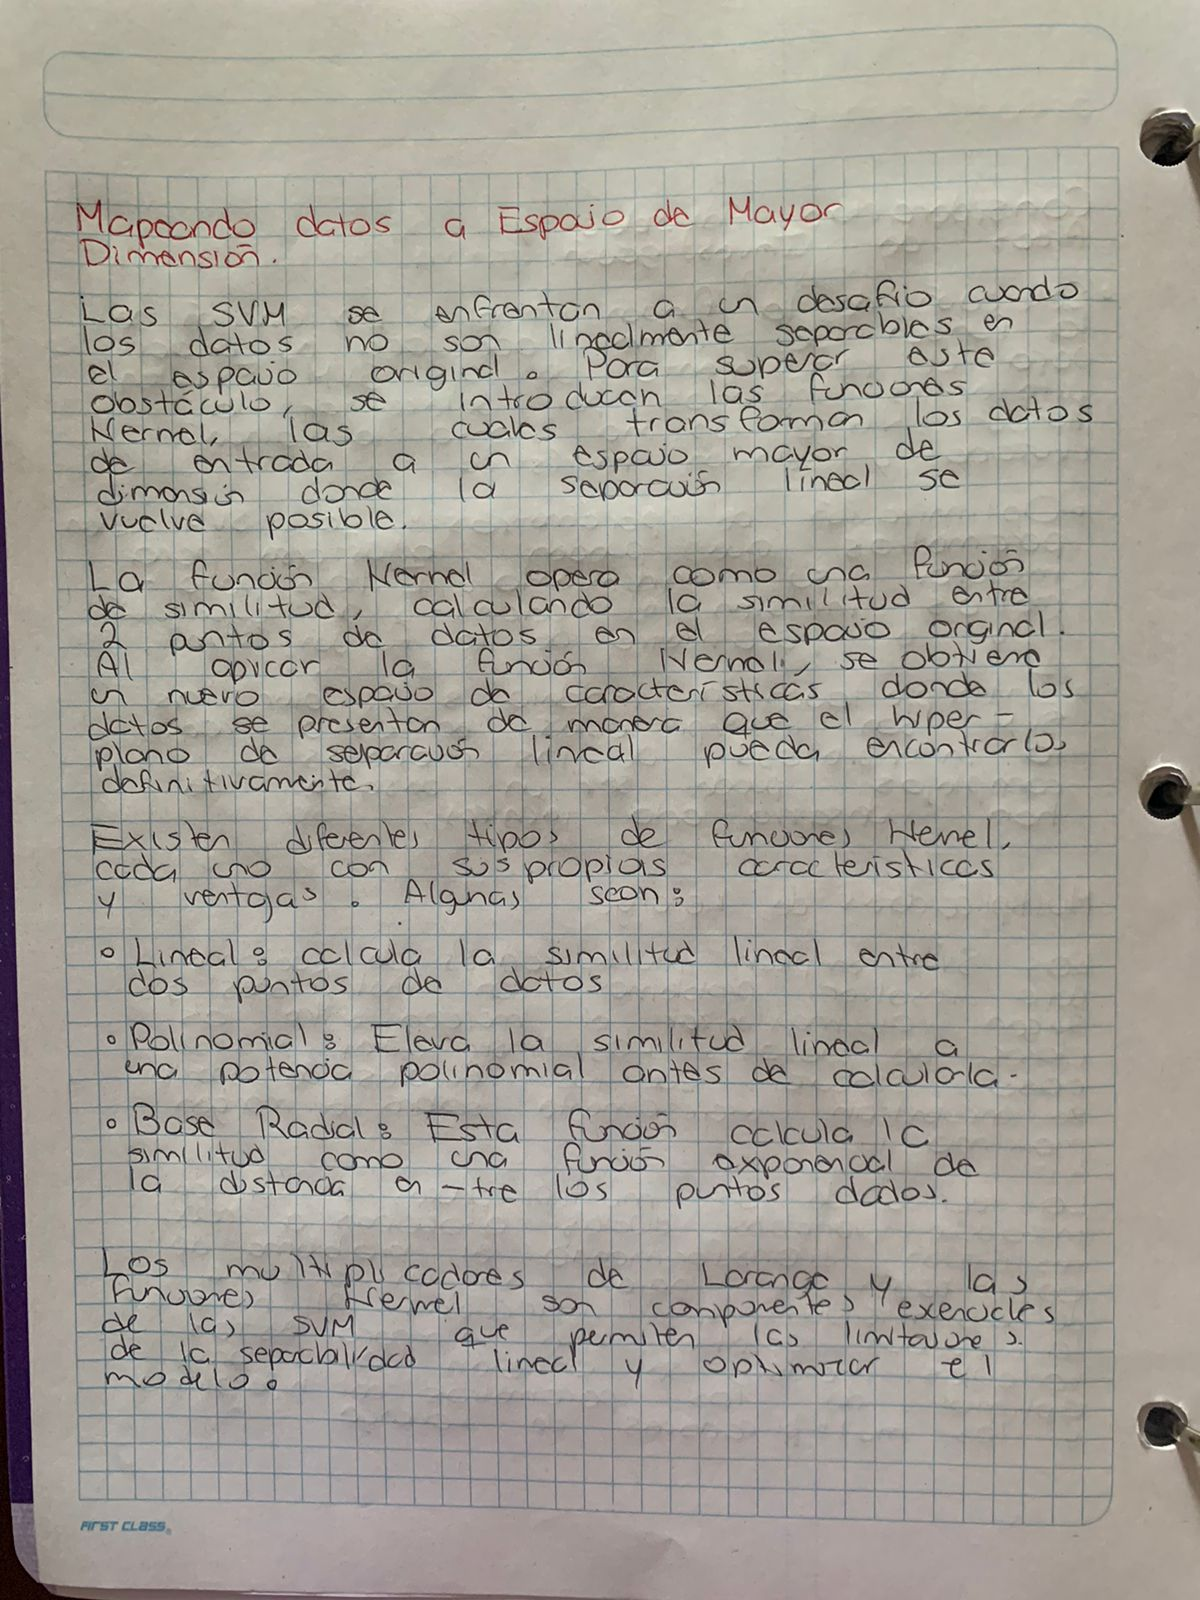 Mapeando datos a Espacio de Mayor
Dimensión.
Las SVM se enfrentan a un desafío cuando
los datos no son linealmente separables en
el espacio original. Para superar este
obstáculo, se introducen las funciones
Kernel, las cuales transforman los datos
de entrada a un espacio mayor de
dimensión donde la separación lineal se
vuelve posible.
La función Kernel opera como una función
de similitud, calculando la similitud entre
2 puntos de datos en el espacio orginal.
Al apicar la función Kernel, se obtiene
un nuevo espacio de características donde los
datos se presentan de manera que el hiper-
plano de separación lineal pueda encontrarlos
definitivamente.
Existen diferentes tipos de funciones Kernel,
cada uno con sus propias características
y ventajas. Algunas sean:
• Lineal: calcula la similitud lineal entre
dos puntos de datos
• Polinomial: Eleva la similitud lineal a
una potencia polinomial antes de calcularla.
• Base Radial: Esta función calcula la
similitud como una función exponencial de
la distancia en-tre los puntos dados.
Los multiplicadores de Larange y las
funciones Kernel son componentes
de las SVM que permiten las limitaciones.
de la separabilidad lineal y optimizar el
modelo.
FIRST CLASS